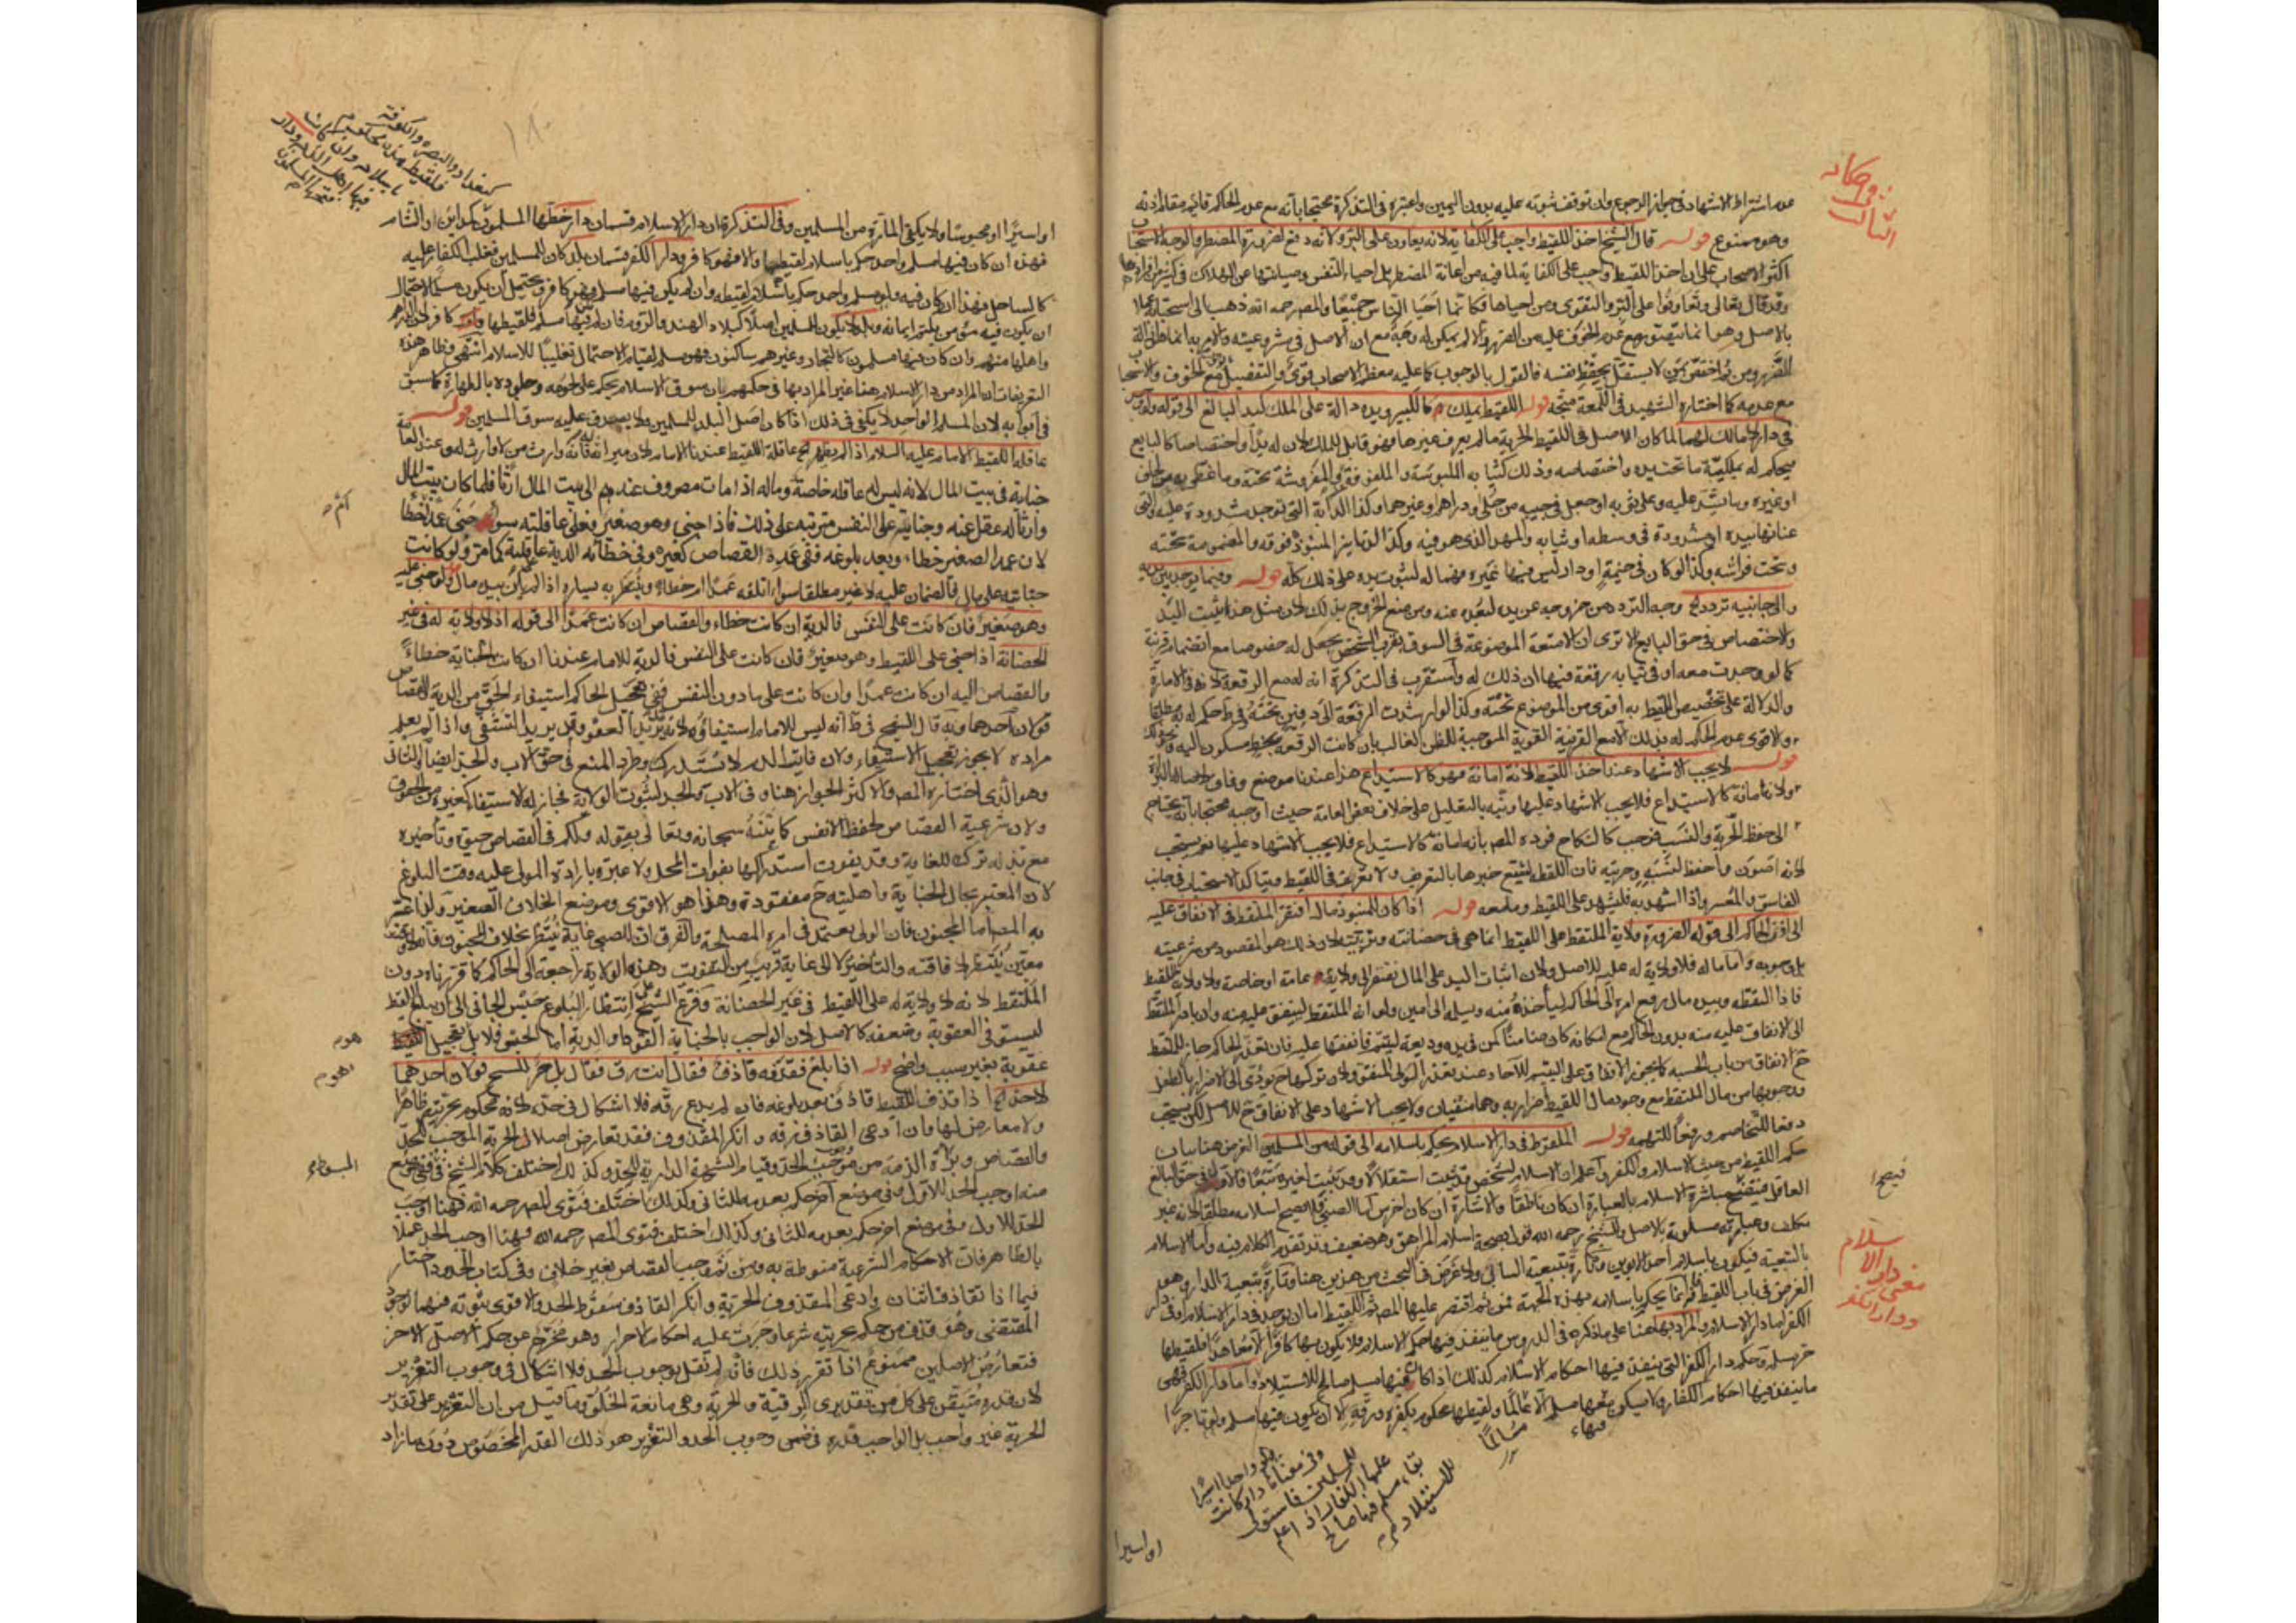 عدم اشتراط الاشهاد في جواز الرجوع وان توقف ثبوته عليه بدون اليمين واعتبره في التذكرة محتجا بانه مع عدم الحاكم قائم مقام اذنه
وهو ممنوع قوله قال الشيخ اخذ اللقيط واجب على الكفاية لانه تعاون على البر ولانه دفع لضرورة المضطر والوجه الاستحباب
اكثر الاصحاب على ان اخذ اللقيط واجب على الكفاية لما فيه من اعانة المضطر بل احياء النفس وصيانتها عن الهلاك في كثير من افرادها
وقد قال تعالى وتعاونوا على البر والتقوى ومن احياها فكانما احيا الناس جميعا والمصر رحمه الله ذهب الى استحبابه عملا
بالاصل وهو انما يتحقق مع عدم الخوف عليه من الضرر والا لم يمكن له وجه مع ان الاصل في مشروعيته والامر به انما هو ازالة
الضرر ومن ثم اختص بمن لا يستقل بحفظ نفسه فالقول بالوجوب كما عليه معظم الاصحاب قوي والتفصيل بوجوبه مع الخوف والاستحباب
مع عدمه كما اختاره الشهيد في اللمعة متجه قوله اللقيط يملك كالكبير ويده دالة على الملك كيد البالغ الى قوله ولو وجد
في دار لا مالك لها لما كان الاصل في اللقيط الحرية ما لم يعرف غيرها وهو قابل للملك لان له يدا واختصاصا كالبالغ
فيحكم له بملكية ما تحت يده واختصاصه وذلك كثيابه الملبوسة والملفوفة والمفروشة تحته وما غطي به من لحاف
او غيره وما شد عليه وعلى ثوبه او جعل في جيبه من حلي او دراهم وغيرهما وكذا الدابة التي توجد مشدودة عليه والتي
عنانها بيده او مشدودة في وسطه او ثيابه والمهد الذي هو فيه وكذا الدنانير المنبوذ فوقه والمصبوبة تحته
وتحت فراشه وكذا لو كان في خيمة او دار ليس فيها غيره فهما له لثبوت يده على ذلك كله قوله وفيما يوجد بين يديه
والى جانبيه تردد الخ وجه التردد من خروجه عن يده لبعده عنه ومن منع الخروج بذلك لان مثل هذا يثبت اليد
والاختصاص في حق البايع الا ترى ان الامتعة الموضوعة في السوق بقرب الشخص يجعل له خصوصا مع انضمام قرينة
كما لو وجدت معه او في ثيابه رقعة فيها ان ذلك له واستقرب في التذكرة انه له مع الرقعة لانها في الامارة
والدلالة على تخصيص اللقيط به اقوى من الموضوع تحته وكذا لو ارشدت الرقعة الى دفين تحته وفي ط حكم له به مطلقا
والاقوى عدم الحكم له بذلك الا مع القرينة القوية الموجبة للظن الغالب بان كانت الرقعة بخط مسكون اليه ونحو ذلك
قوله لا يجب الاشهاد عند اخذ اللقيط لانه امانة فهو كالاستيداع هذا عندنا موضع وفاق ولاصالة البراءة
ولانه امانة كالاستيداع فلا يجب الاشهاد عليها ونبه بالتعليل على خلاف بعض العامة حيث اوجبه محتجا بانه يحتاج
الى حفظ الحرية والنسب فوجب كالنكاح فرده المصر بانه امانة كالاستيداع فلا يجب الاشهاد عليها نعم يستحب
لانه اصون واحفظ لنسبه وحريته فان اللقطة يشيع خبرها بالتعريف ولا تعريف في اللقيط ويتاكد الاستحباب في جانب
الفاسق والمعسر واذا اشهد به فليشهد على اللقيط وما معه قوله اذا كان للمنبوذ مال افتقر الملتقط في الانفاق عليه
الى اذن الحاكم الى قوله الضرورة ولاية الملتقط على اللقيط انما هي في حضانته وتربيته لان ذلك هو المقصود من شرعيته
بل وجوبه واما ماله فلا ولاية له عليه للاصل ولان اثبات اليد على المال يفتقر الى ولاية عامة او خاصة ولا ولاية للملتقط
فاذا التقطه وبيده مال رفع امره الى الحاكم لياخذه منه ويسلمه الى امين ولو انه الملتقط لينفق عليه منه وان بادر الملتقط
الى الانفاق عليه منه بدون الحاكم مع امكانه كان ضامنا كمن في يده وديعة ليتيم فانفقها عليه فان تعذر الحاكم جاز للملتقط
ح الانفاق من باب الحسبة كما يجوز الانفاق على اليتيم للآحاد عند تعذر الولي المنفق ولان تركها ح يؤدى الى الاضرار بالطفل
ووجوبها من مال الملتقط مع وجود مال اللقيط اضرار به وهما منفيان ولا يجب الاشهاد على الانفاق ح للاصل لكن يستحب
دفعا للتخاصم ورفعا للتهمة قوله الملقوط في دار الاسلام يحكم باسلامه الى قوله من المسلمين الغرض هنا بيان
حكم اللقيط من حيث الاسلام والكفر واعلم ان الاسلام لشخص قد يثبت استقلالا وقد يثبت لغيره تبعا فالاول في حق البالغ
العاقل فيتضح بمباشرة الاسلام بالعبارة ان كان ناطقا والاشارة ان كان اخرس اما الصبي فلا يصح اسلامه مطلقا لانه غير
مكلف وعبارته مسلوبة بالاصل وللشيخ رحمه الله قول بصحة اسلام المراهق وهو ضعيف وقد تقدم الكلام فيه واما الاسلام
بالتبعية فيكون باسلام احد الابوين وتارة بتبعية السابي ولا غرض في البحث من هذين هنا وتارة بتبعية الدار وهو
الغرض في باب اللقيط فانما يحكم باسلامه بهذه الجهة فمن ثم اقتصر عليها المصر ثم اللقيط اما ان يوجد في دار الاسلام او في دار
الكفر اما دار الاسلام والمراد بها هنا على ما ذكره في الدروس ما ينفذ فيها حكم الاسلام فلا يكون بها كافرا الا معاهدا فلقيطها
حر مسلم وحكم دار الكفر التي ينفذ فيها احكام الاسلام كذلك اذا كان فيها مسلم صالح للاستيلاد واما دار الكفر فهي
ما ينفذ فيها احكام الكفار ولا يسكن فيها مسلم الا مسالما ولقيطها محكوم بكفره ورقه الا ان يكون فيها مسلم ولو تاجرا
وصكاته
الثالث
فيصح
اسلام
معنى دار الا
ودار الكفر
فيها
مسالما
ولو واحدا اسيرا
وفي معناها دار كانت
للمسلمين فاستولى
عليها الكفار اذا علم
بقاء مسلم فيها صالح
للاستيلاد
او اسيرا
كبغداد والبصرة والكوفة
فلقيط هذه محكوم
باسلامه وان كانت
فيها اهل الذمة ودار
فتحها المسلمون
او اسيرا او محبوسا ولا يكفي المارة من المسلمين وفي التذكرة ان دار الاسلام قسمان دار خطها المسلمون كمداين او الشام
فهذه ان كان فيها مسلم واحد حكم باسلام لقيطها والا فهو كافر ودار الكفر قسمان بلد كان للمسلمين فغلب الكفار عليه
كالساحل فهذا ان كان فيه ولو مسلم واحد حكم باسلام لقيطه وان لم يكن فيها مسلم فهو كافر ويحتمل ان يكون مسلما لاحتمال
ان يكون فيه مؤمن يكتم ايمانه وبلد لا يكون للمسلمين اصلا كبلاد الهند والروم فان لم يكن فيها مسلم فلقيطها كافر لان الدار لهم
واهلها منهم وان كان فيها مسلمون كالتجار وغيرهم ساكنون فهو مسلم لقيام الاحتمال تغليبا للاسلام انتهى وظاهر هذه
التعريفات ان المراد من دار الاسلام هنا غير المراد بها في حكمهم بان سوق الاسلام يحكم على لحومه وجلوده بالطهارة كما سبق
في ابوابه لان المسلم الواحد لا يكفي في ذلك اذا كان اصل البلد للمسلمين ولا يصدق عليه سوق المسلمين قوله
عاقلة اللقيط الامام عليه السلام اذا لم يظهر الخ عاقلة اللقيط عندنا الامام لان ميراثه له فانه وارث من لا وارث له وعند العامة
جنايته في بيت المال لانه ليس له عاقلة خاصة وماله اذا مات مصروف عندهم الى بيت المال ارثا فلما كان بيت المال
وارثا له عقل عنه وجنايته على النفس مترتبة على ذلك فاذا جنى وهو صغير فعلى عاقلته سواء جنى عمدا ام خطأ
لان عمد الصغير خطاء وبعد بلوغه ففي عمده القصاص كغيره وفي خطائه الدية على عاقلته كما مر ولو كانت
جنايته على مال فالضمان عليه لا غير مطلقا سواء اتلفه عمدا ام خطاء وينتظر به يساره اذا لم يكن بيده مال قوله ولو جني عليه
وهو صغير فان كانت على النفس فالدية ان كانت خطاء والقصاص ان كانت عمدا الى قوله اذ لا ولاية له في غير
الحضانة اذا جني على اللقيط وهو صغير فان كانت على النفس فالدية للامام عندنا ان كانت الجناية خطاء
والقصاص اليه ان كانت عمدا وان كانت على ما دون النفس ففي تعجيل الحاكم استيفاء الحق من الدية والقصاص
قولان احدهما وبه قال الشيخ في ط انه ليس للامام استيفاؤه لانه قد يريد العفو وقد يريد التشفي واذا لم يعلم
مراده لا يجوز تعجيل الاستيفاء ولان فايت الدم لا يستدرك وطرد المنع في حق الاب والجد ايضا والثاني
وهو الذي اختاره المصر والاكثر الجواز هنا وفي الاب والجد لثبوت الولاية فجاز له الاستيفاء كغيره من الحقوق
ولان شرعية القصاص لحفظ الانفس كما بينه سبحانه وتعالى بقوله ولكم في القصاص حيوة وتأخيره
مع بذله ترك للغاية وقد يفوت استدراكها بفوات المحل ولا عبرة بارادة المولى عليه وقت البلوغ
لان المعتبر بحال الجناية واهليته ح مفقودة وهذا هو الاقوى وموضع الخلاف الصغير ولذا عبر
به المصر اما المجنون فان الولي يعتمد في امره المصلحة والفرق ان للصبي غاية تنتظر بخلاف المجنون فانه لا وقت
معين ينتظر لافاقته والتأخير لا الى غاية قريب من التفويت وهذه الولاية راجعة الى الحاكم كما قررناه دون
الملتقط لانه لا ولاية له على اللقيط في غير الحضانة وفرع الشيخ على انتظار البلوغ حبس الجاني الى ان يبلغ اللقيط
ليستوفي العقوبة وضعفه كالاصل لان الواجب بالجناية القود او الدية اما الحبس فلا بل تعجيل
عقوبة بغير سبب واضح قوله اذا بلغ فقذفه قاذف فقال انت رق فقال بل حر للشيخ قولان احدهما
لاحد الخ اذا قذف اللقيط قاذف بعد بلوغه فان لم يدع رقه فلا اشكال في حده لانه محكوم بحريته ظاهرا
ولا معارض لها وان ادعى القاذف رقه وانكر المقذوف فقد تعارض اصلا الحرية الموجب للحد
والقصاص وبراءة الذمة من موجب الحد وقيام الشبهة الدارية للحد وكذلك اختلف كلام الشيخ ففي موضع
منه اوجب الحد للاول وفي موضع آخر حكم بعدمه للثاني وكذلك اختلف فتوى المصر رحمه الله فهنا اوجب
الحد للاول وفي موضع اخر حكم بعدمه للثاني وكذلك اختلف فتوى المصر رحمه الله فهنا اوجب الحد عملا
بالظاهر فان الاحكام الشرعية منوطة به ومن ثم يجب القصاص بغير خلاف وفي كتاب الحدود اختار
فيما اذا تقاذف اثنان وادعى المقذوف الحرية وانكر القاذف سقوط الحد والاقوى ثبوته فيهما لوجود
المقتضي وهو قذف من حكم بحريته شرعا وجرت عليه احكام الاحرار وهو مخرج عن حكم الاصل الاخر
فتعارض الاصلين ممنوع اذا تقرر ذلك فانه لم نقل بوجوب الحد فلا اشكال في وجوب التعزير
لان قدره متيقن على كل من تقديري الرقية والحرية وهي مانعة الخلو وما قيل من ان التعزير على تقدير
الحرية غير واجب بل الواجب قدره في ضمن وجوب الحد والتعزير هو ذلك القدر المخصوص دون ما زاد
المبسوط